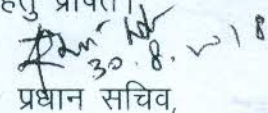 हेतु प्रेषित।
30.8.2018
प्रधान सचिव,